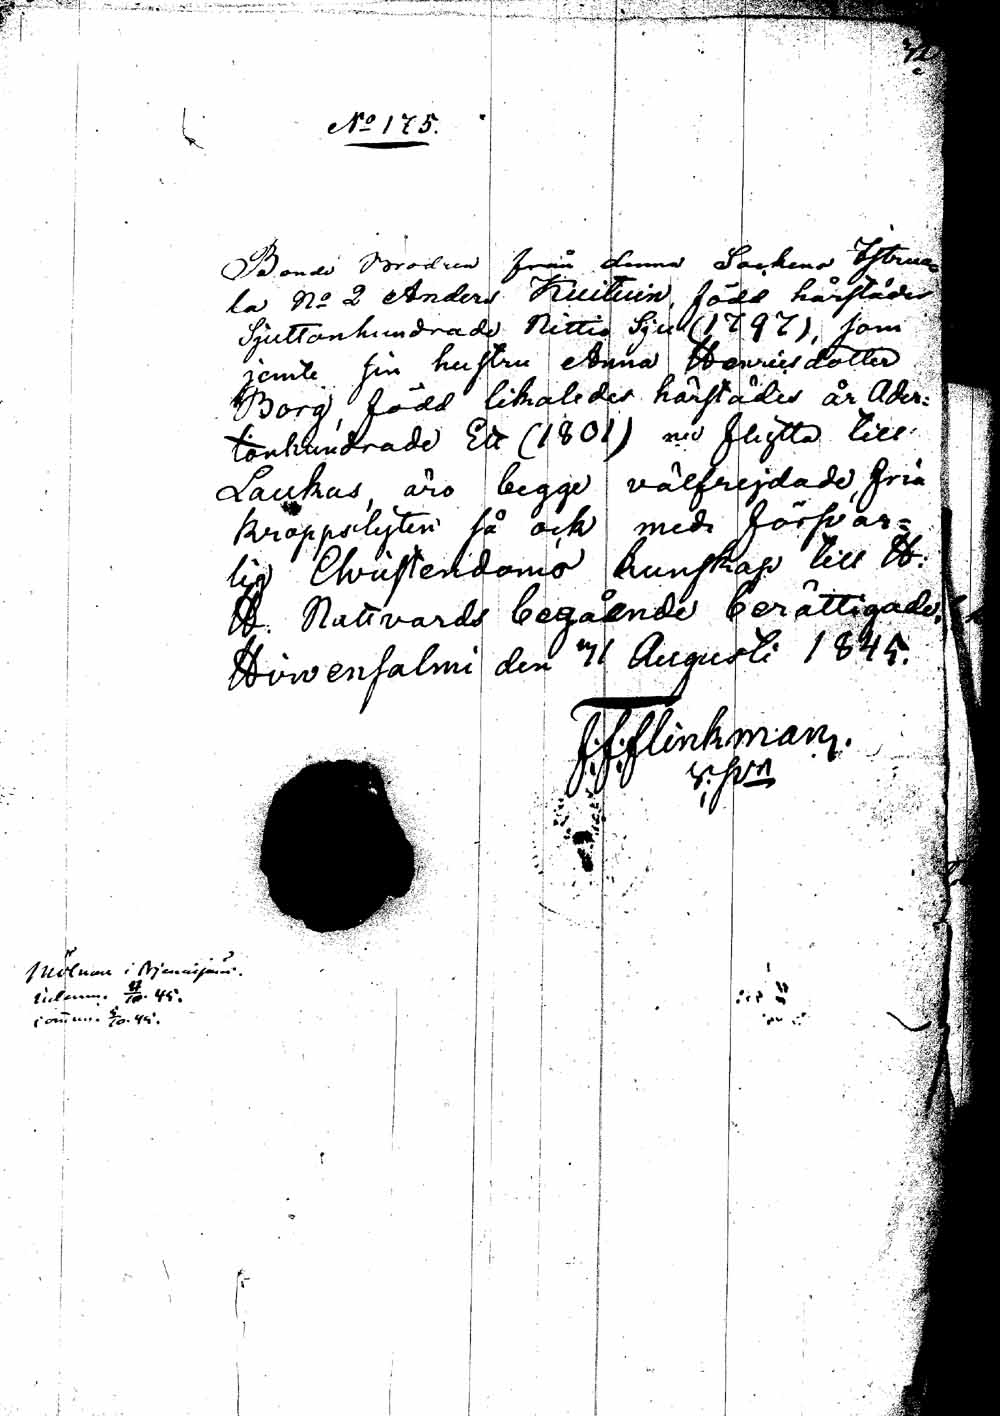 No 175.
Bonde Brodren från denna Sockens Ystrua=
la No 2 Anders Kuituin, född härstädes
Sjuttonhundrade Nittio Sju (1797), som
jemte sin hustru Anna Henricsdotter
Borg, född likaledes härstädes år Ader=
tonhundrade Ett (1801) nu flytta till
Laukas, äro begge välfrejdade, fria
kroppslyten så ock med försvar=
lig Christendoms kunskap till H.
H. Nattvards begående berättigade.
Hirvensalmi den 11 Augusti 1845.
J. F. Flinkman.
i
10. 45.
10. 45.